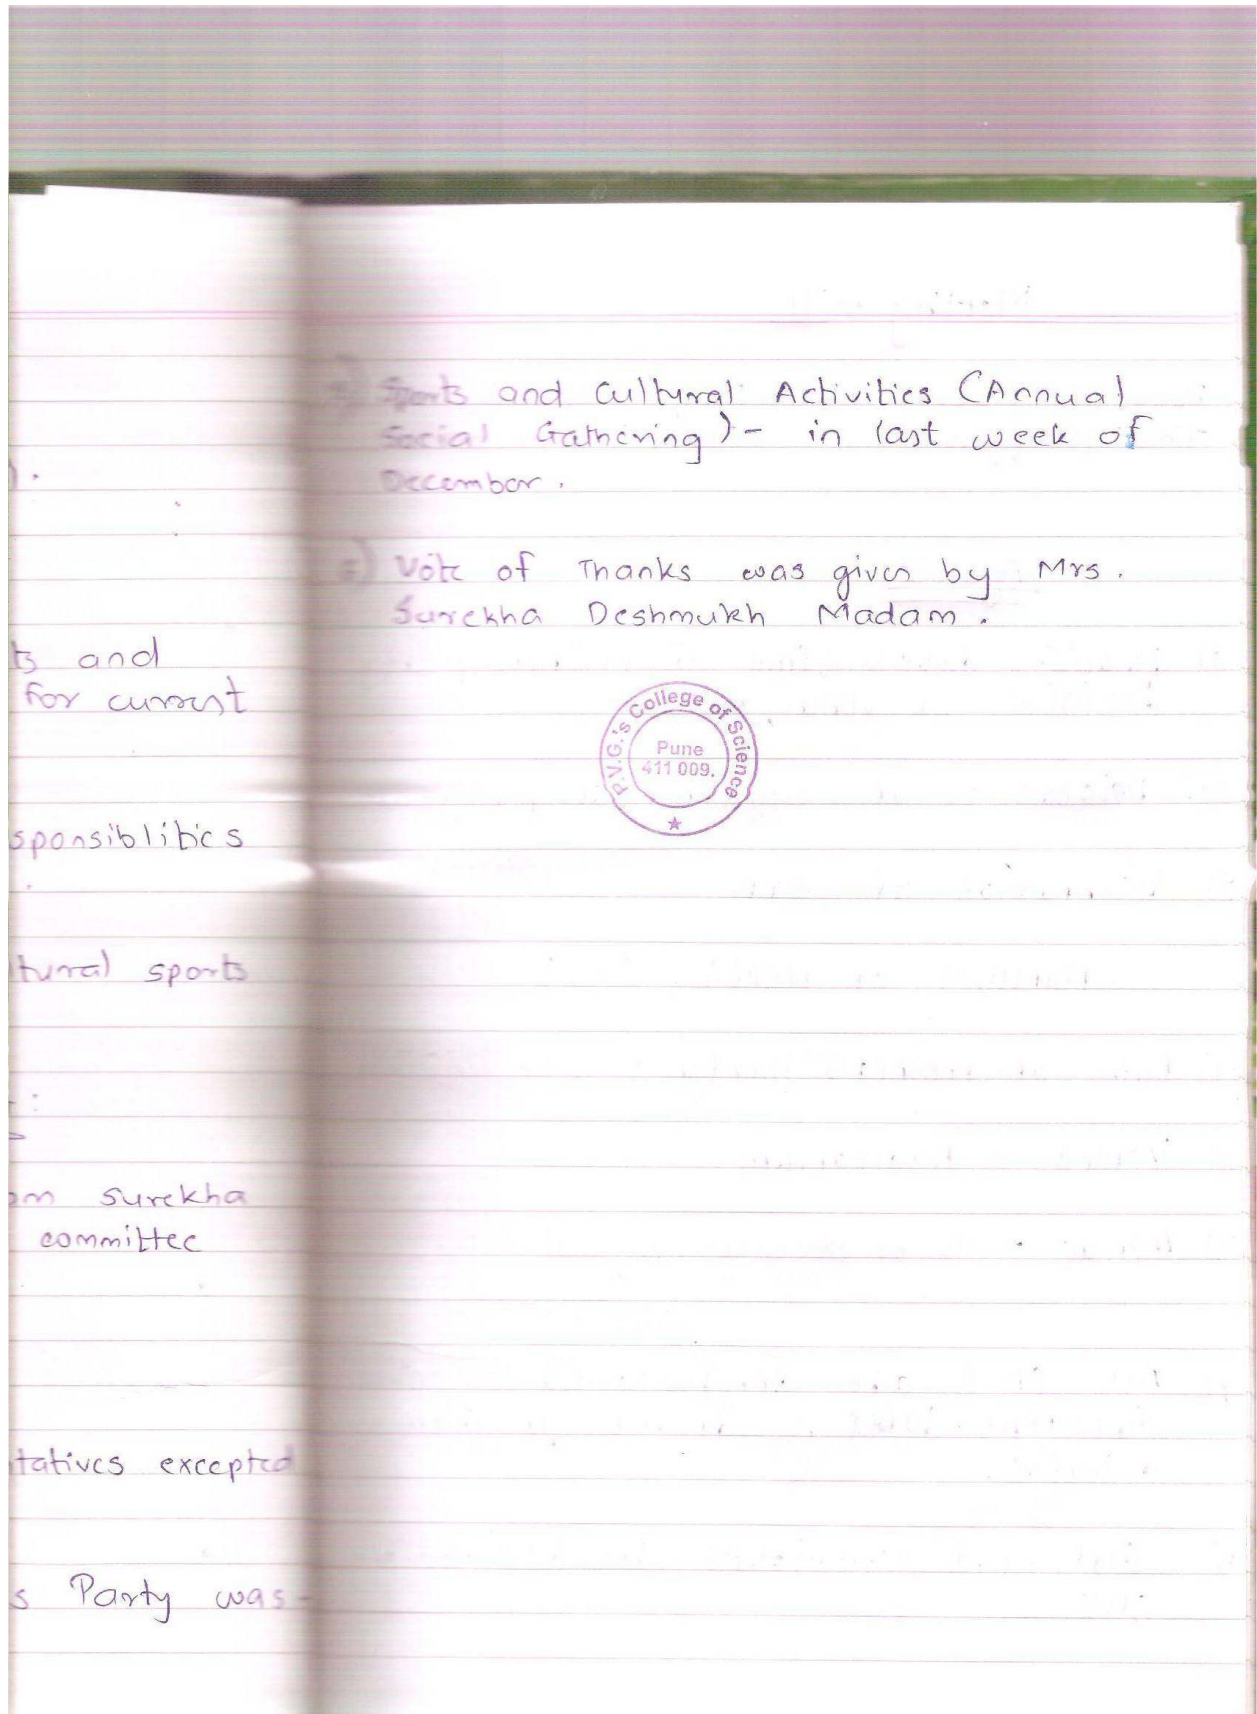 ).
ts and
for current
sponsiblities
tural sports
om surekha
committee
tatives excepted
s Party was-
Sports and Cultural Activities (Annual
Social Gathering) - in last week of
December.
5) Vote of Thanks was given by Mrs.
Surekha Deshmukh Madam.
P.V.G.'s College of Science
Pune
411 009.